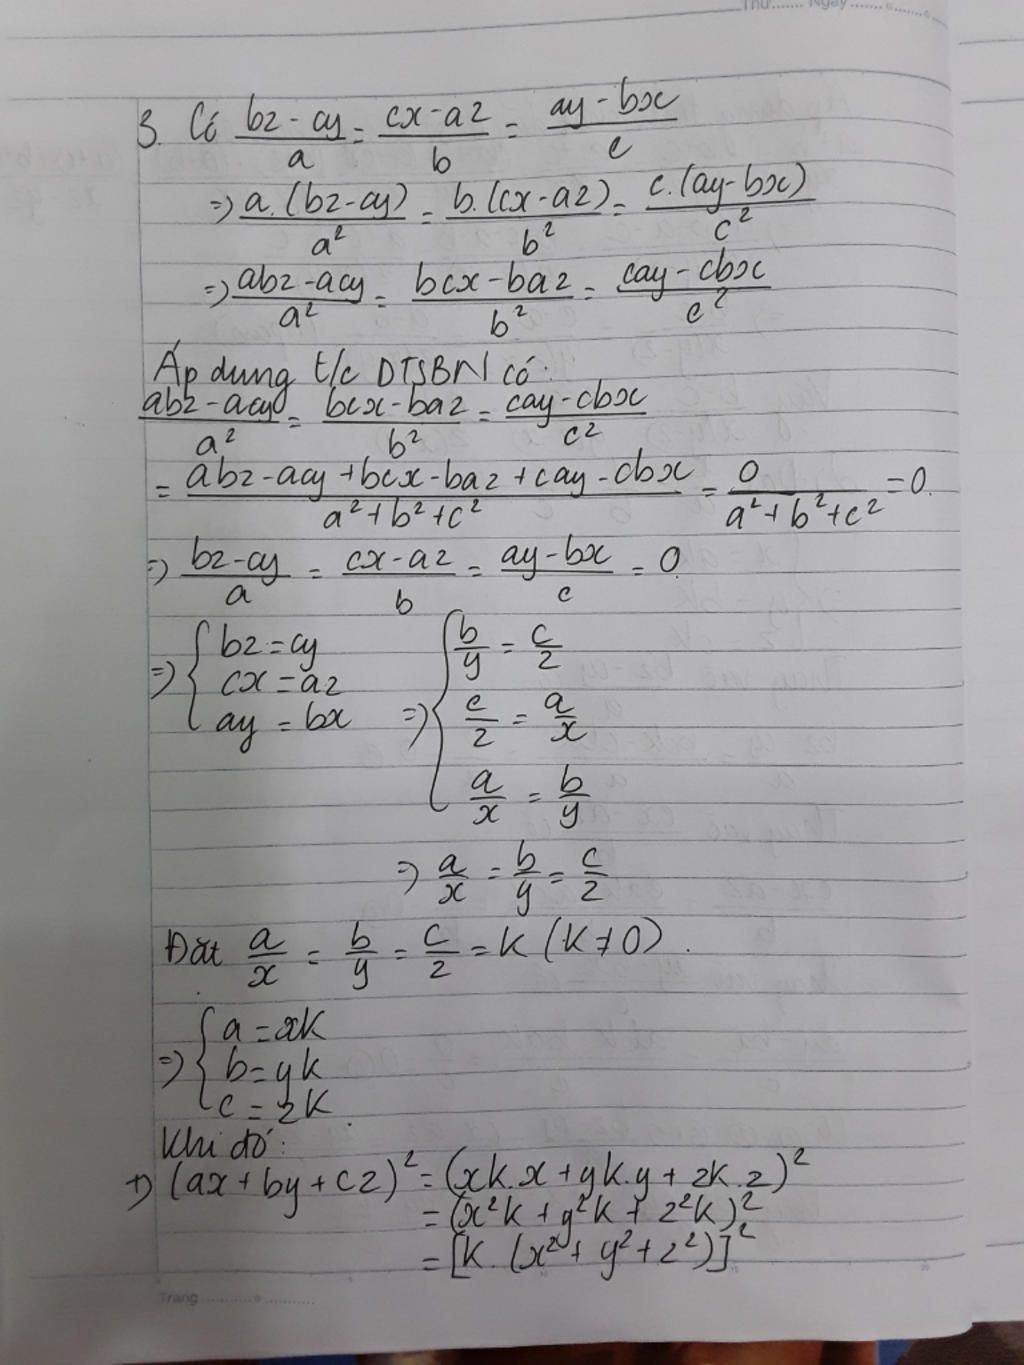 Thứ....... Ngày.......
3. Có (bz - cy)/a = (cx - az)/b = (ay - bx)/c
=> a.(bz-cy)/a² = b.(cx-az)/b² = c.(ay-bx)/c²
=> (abz - acy)/a² = (bcx - baz)/b² = (cay - cbx)/c²
Áp dung t/c DTSBN có:
(abz - acy)/a² = (bcx - baz)/b² = (cay - cbx)/c²
= (abz - acy + bcx - baz + cay - cbx)/(a² + b² + c²) = 0/(a² + b² + c²) = 0.
=> (bz - cy)/a = (cx - az)/b = (ay - bx)/c = 0
=> { bz = cy
cx = az
ay = bx
=> { b/y = c/z
c/z = a/x
a/x = b/y
=> a/x = b/y = c/z
Đặt a/x = b/y = c/z = k (k ≠ 0).
=> { a = xk
b = yk
c = zk
Khi đó:
+) (ax + by + cz)² = (xk.x + yk.y + zk.z)²
= (x²k + y²k + z²k)²
= [k.(x² + y² + z²)]²
Trang